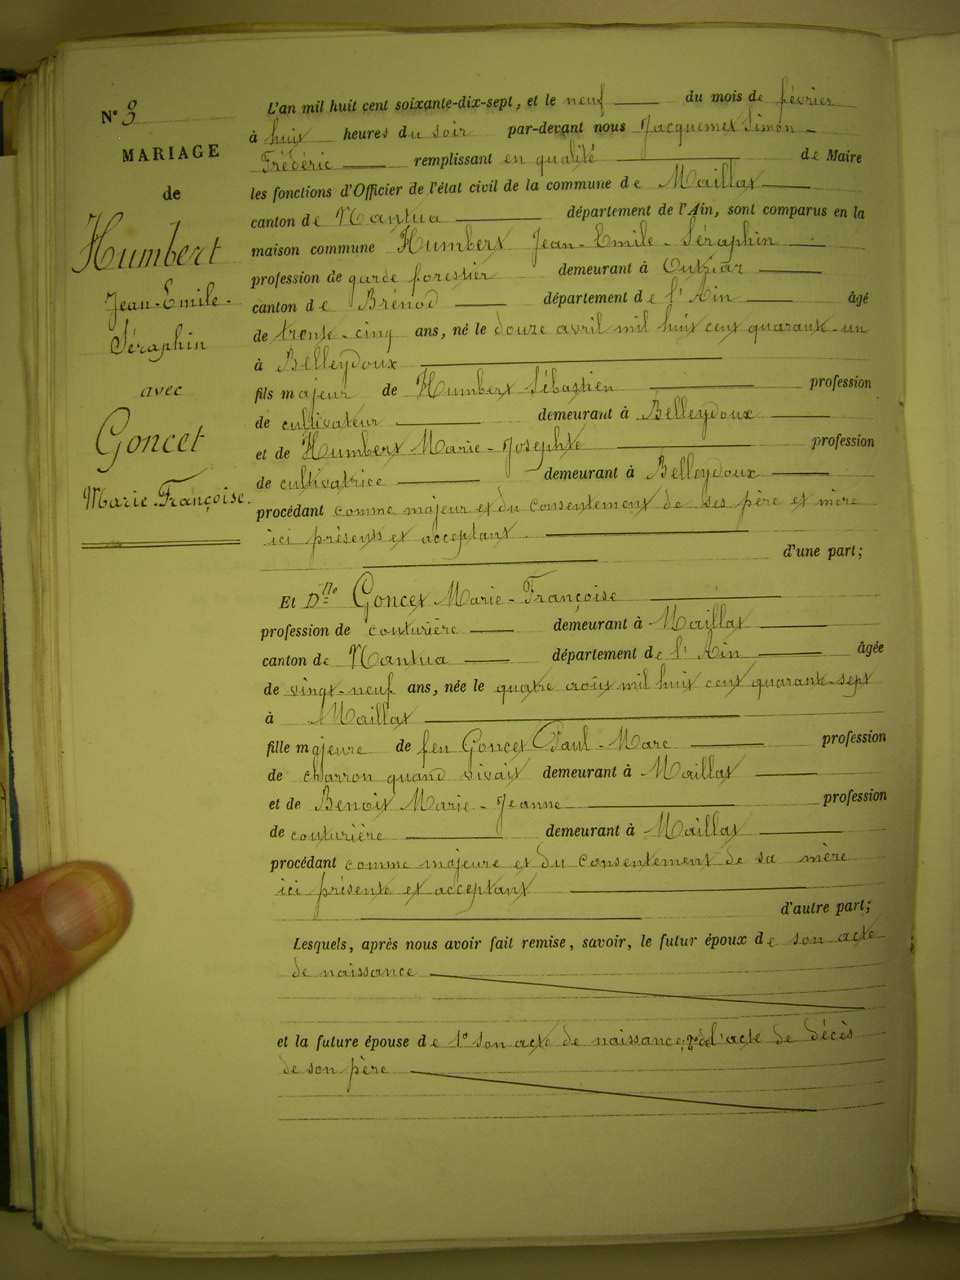 N° 3
MARIAGE
de
Humbert
Jean-Emile-
Séraphin
avec
Goncet
Marie Françoise.
L'an mil huit cent soixante-dix-sept, et le neuf du mois de février
à huit heures du soir par-devant nous Jacquemet Simon-
Frédéric remplissant en qualité de Maire
les fonctions d'Officier de l'état civil de la commune de Maillat
canton de Nantua département de l'Ain, sont comparus en la
maison commune Humbert Jean-Emile-Séraphin
profession de garde forestier demeurant à Outriaz
canton de Brénod département de l'Ain âgé
de trente-cinq ans, né le douze avril mil huit cent quarante-un
à Belleydoux
fils majeur de Humbert Sébastien profession
de cultivateur demeurant à Belleydoux
et de Humbert Marie-Josephte profession
de cultivatrice demeurant à Belleydoux
procédant comme majeur et du consentement de ses père et mère
ici présents et acceptant
d'une part;
Et Dlle Goncet Marie-Françoise
profession de couturière demeurant à Maillat
canton de Nantua département de l'Ain âgée
de vingt-neuf ans, née le quatre août mil huit cent quarante-sept
à Maillat
fille majeure de feu Goncet Paul-Marc profession
de charron quand vivait demeurant à Maillat
et de Benoit Marie-Jeanne profession
de couturière demeurant à Maillat
procédant comme majeure et du consentement de sa mère
ici présente et acceptant
d'autre part;
Lesquels, après nous avoir fait remise, savoir, le futur époux de son acte
de naissance
et la future épouse de 1° son acte de naissance; 2° de l'acte de décès
de son père